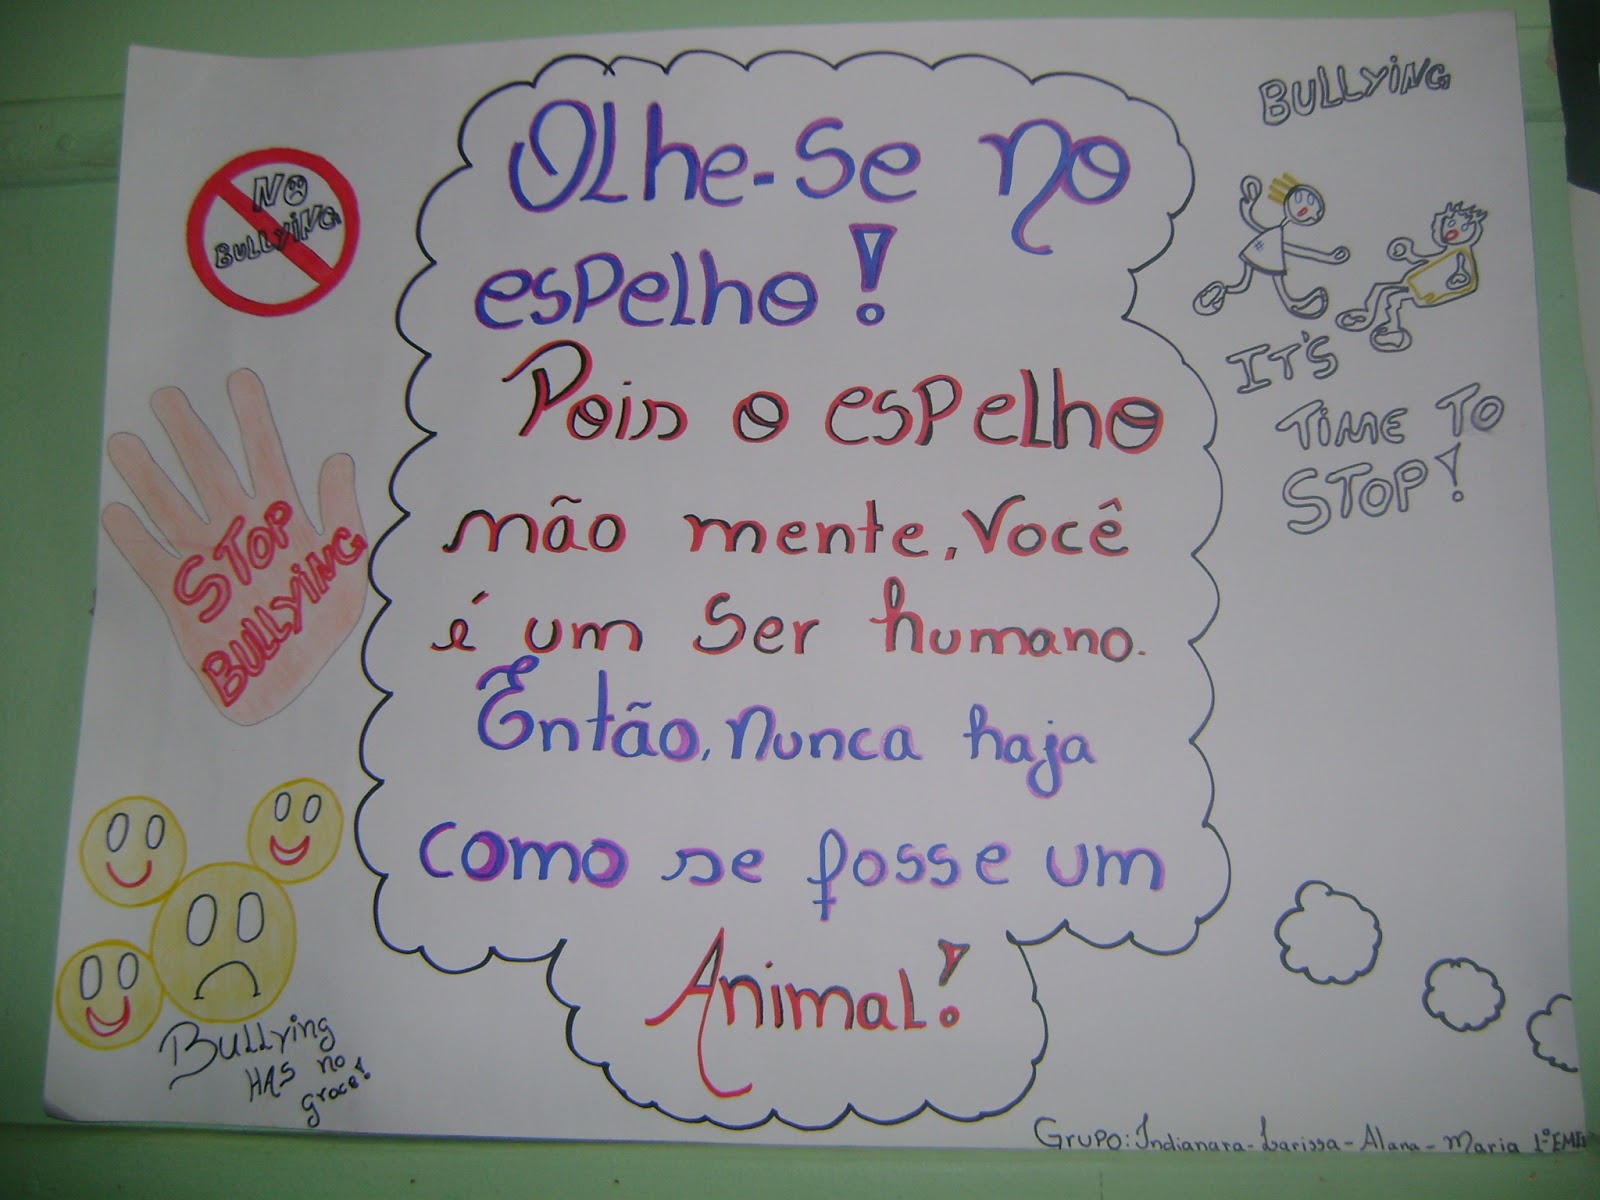 Olhe-se no
espelho!
Pois o espelho
não mente. Você
é um ser humano.
Então, nunca haja
como se fosse um
Animal!
NO
BULLYING
STOP
BULLYING
Bullying
HAS no
grace!
BULLYING
IT'S
TIME TO
STOP!
Grupo: Indianara - Larissa - Alana - Maria 1º